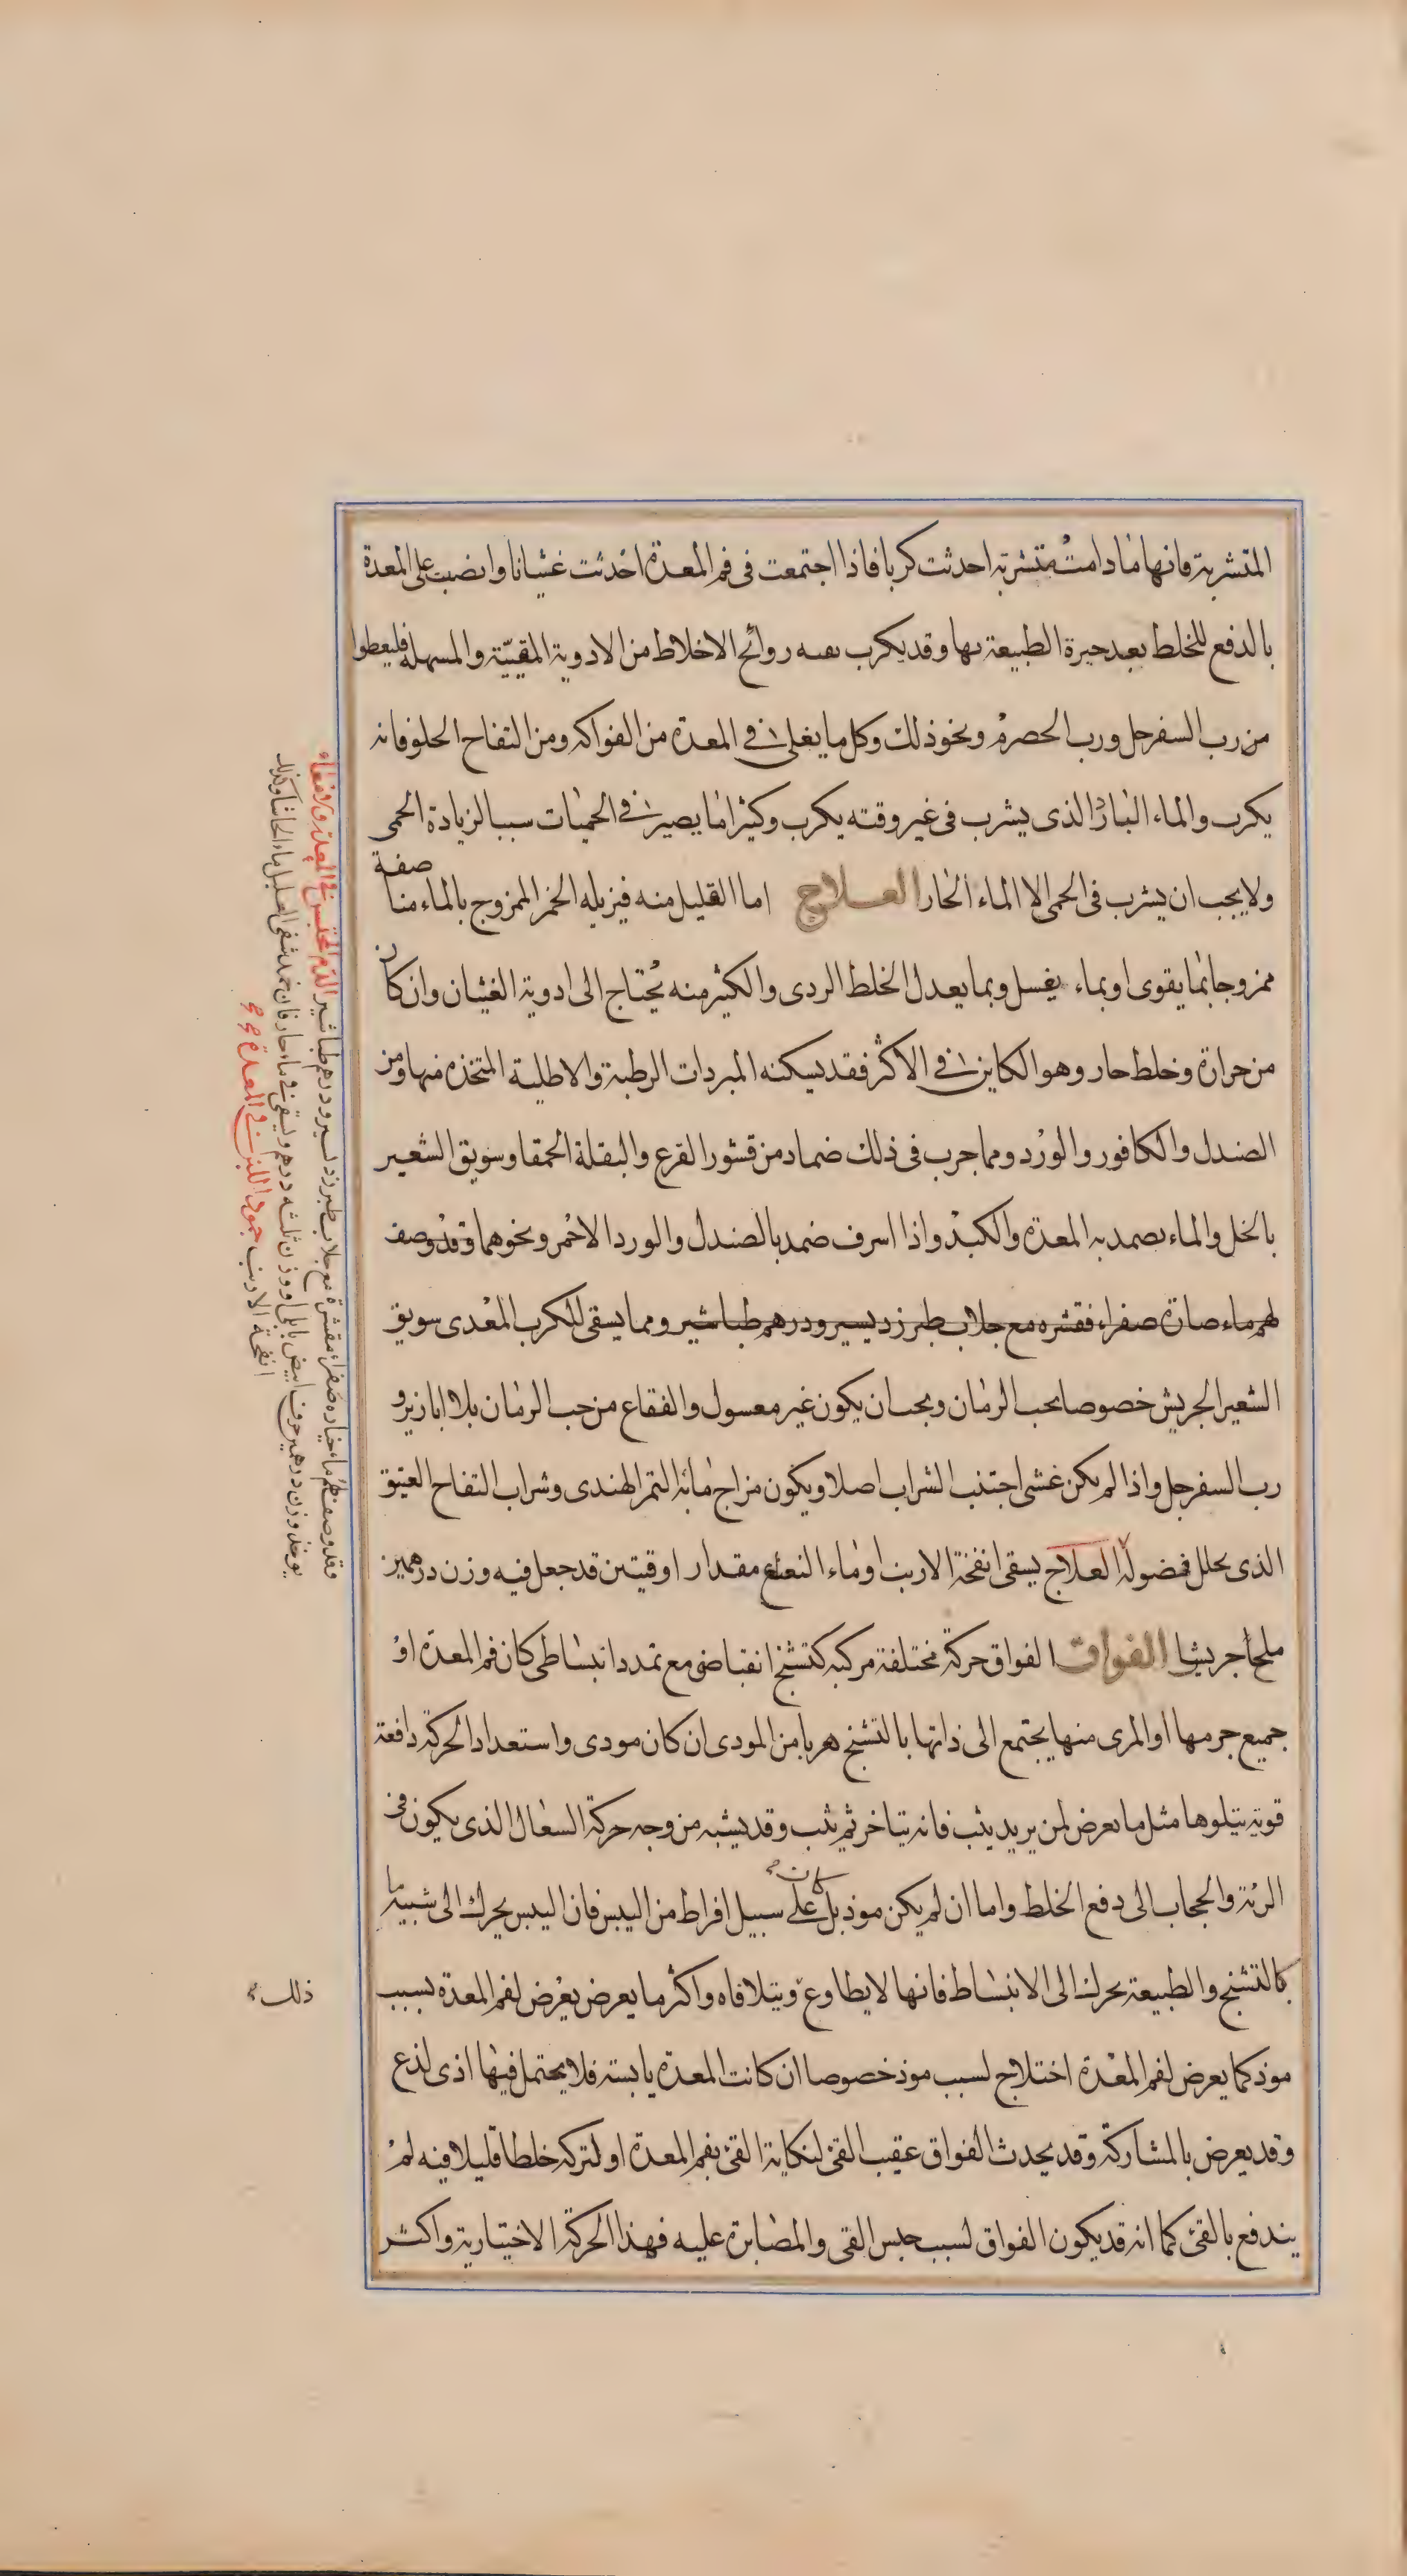 المتشربة فانها ما دامت متشربة احدثت كربا فاذا اجتمعت فى فم المعدة احدثت غشانا وانصبت على المعدة
بالدفع للخلط بعد حيرة الطبيعة بها وقد يكرب روائح الاخلاط من الادوية المقيّئة والمسهلة فليعطوا
من رب السفرجل ورب الحصرم ونحو ذلك وكل ما يغلى فى المعدة من الفواكه ومن التفاح الحلو فانه
يكرب والماء البارد الذى يشرب فى غير وقته يكرب وكثيرا ما يصير فى الحميات سببا لزيادة الحمى
ولا يجب ان يشرب فى الحمى الا الماء الحار العلاج اما القليل منه فيزيله الخمر الممزوج بالماء منا صفة
ممزوجا بما يقوى او بماء يغسل وبما يعدل الخلط الردى والكثير منه يحتاج الى ادوية الغشيان وان كان
من حرارة وخلط حار وهو الكاين فى الاكثر فقد يسكنه المبردات الرطبة والاطلية المتخذة منها ومن
الصندل والكافور والورد ومما جرب فى ذلك ضماد من قشور القرع والبقلة الحمقا وسويق الشعير
بالخل والماء يضمد به المعدة والكبد واذا اسرف ضمد بالصندل والورد الاحمر ونحوهما وقد وصف
لهم ماء صفراء فقشره مع جلاب طبرزد يسير ودرهم طباشير ومما يسقى للكرب المعدى سويق
الشعير الجريش خصوصا بحب الرمان ويجب ان يكون غير معسول والفقاع من حب الرمان بلا ابازير و
رب السفرجل واذا لم يكن غشى اجتنب الشراب اصلا ويكون مزاج مائه التمر الهندى وشراب التفاح العتيق
الذى يحلل فضوله العلاج يسقى انفحة الارنب او ماء النعناع مقدار اوقيتين قد جعل فيه وزن درهمين
ملحا جريشا الفواق الفواق حركة مختلفة مركبة كتشنج انقباضى مع تمدد انبساطى كان فم المعدة او
جميع جرمها او المرى منها يجتمع الى ذاتها بالتشنج هربا من المودى ان كان مودى واستعداد الحركة دافعة
قوية يتلوها مثل ما يعرض لمن يريد يثب فانه يتاخر ثم يثب وقد يشبه من وجه حركة السعال الذى يكون فى
الرئة والحجاب الى دفع الخلط واما ان لم يكن موذ بل كان على سبيل افراط من اليبس فان اليبس يحرك الى شبيه ما
كالتشنج والطبيعة يحرك الى الانبساط فانها لا يطاوع ويتلافاه واكثر ما يعرض يعرض لفم المعدة بسبب
ذلك
موذ كما يعرض لفم المعدة اختلاج لسبب موذ خصوصا ان كانت المعدة يابسة فلا يحتمل فيها اذى لذع
وقد يعرض بالمشاركة وقد يحدث الفواق عقيب القئ لنكاية القئ بفم المعدة او لتركه خلطا قليلا فيه لم
يندفع بالقئ كما انه قد يكون الفواق لسبب حبس القى والمصابرة عليه فهذا الحركة الاختيارية واكثر
وقد وصف لهم ماء خياره صفراء مقشرة مع جلاب طبرزد يسير ودرهم طباشير الدم المحتبس فى المعدة
يوخذ وزن درهمين حرف ابيض او وزن ثلثه درهم ويسقى فى ماء حار فان
انفحة الارنب جمود اللبن فى المعدة